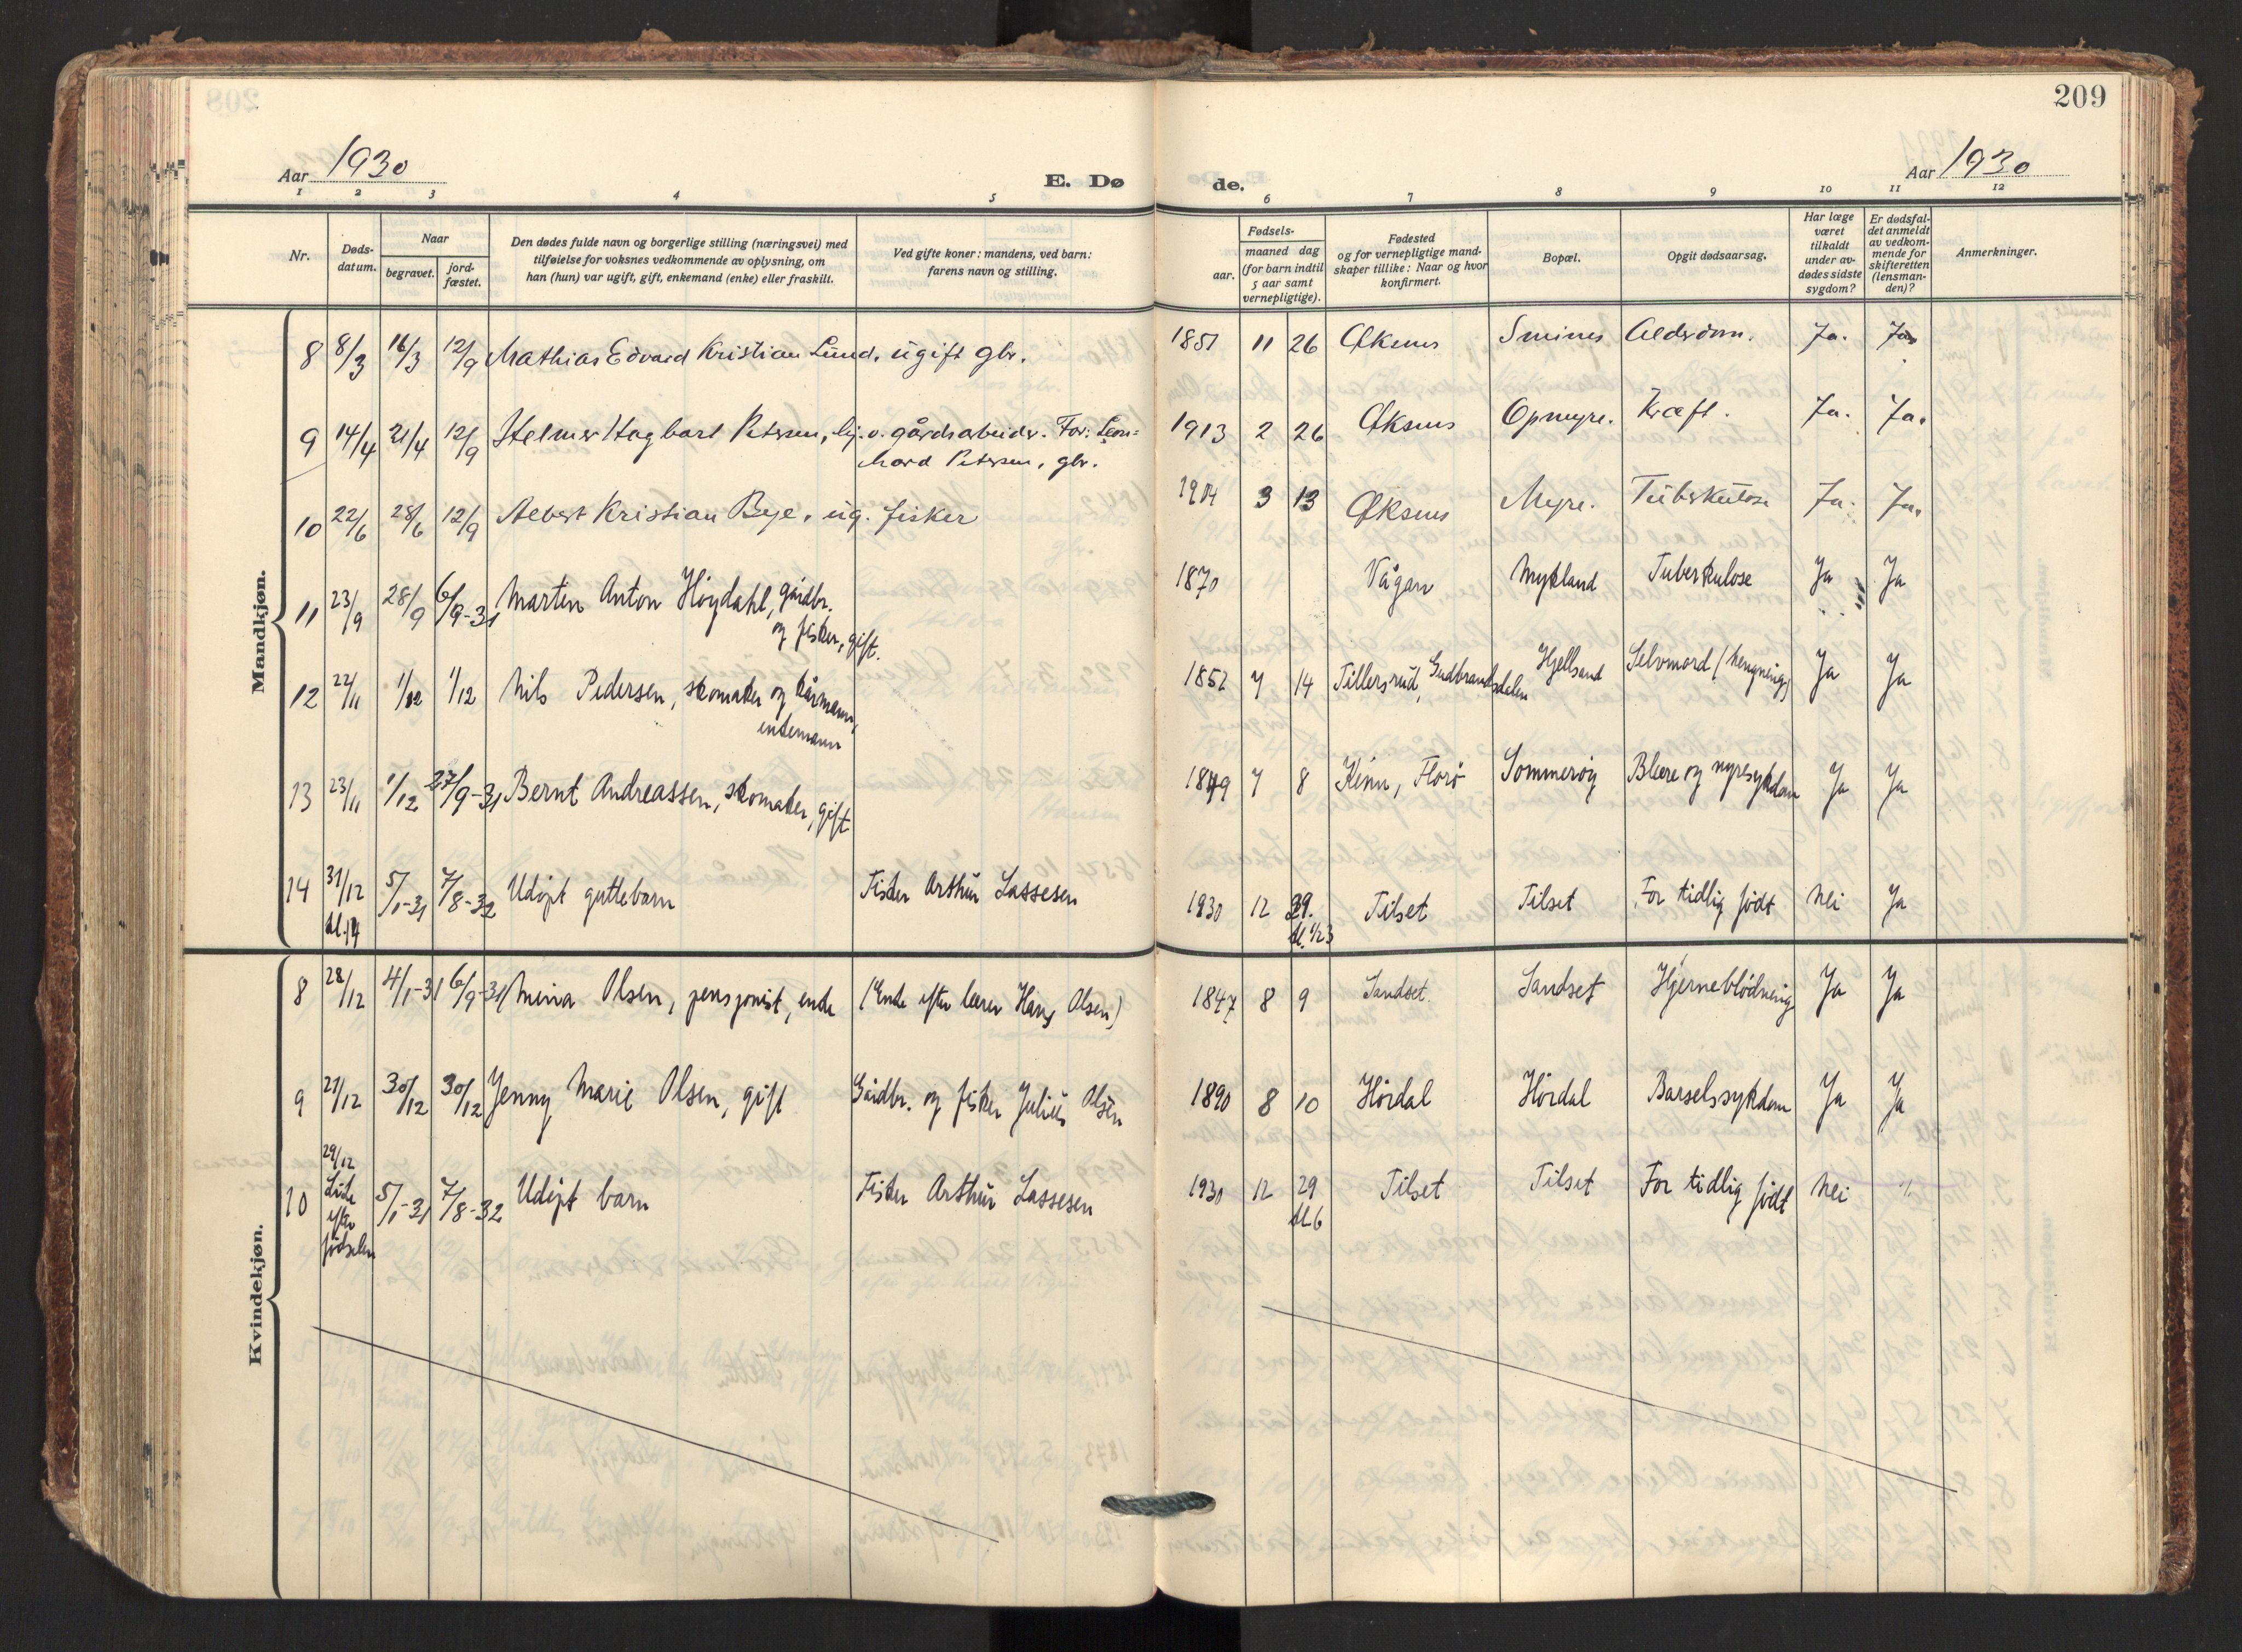 209
Aar 1930
E. Dø
de.
Aar 1930
1 2 3 4 5 6 7 8 9 10 11 12
Nr.
Døds-
datum.
Naar
begravet.
jord-
fæstet.
Den dødes fulde navn og borgerlige stilling (næringsvei) med
tilføielse for voksnes vedkommende av oplysning, om
han (hun) var ugift, gift, enkemand (enke) eller fraskilt.
Ved gifte koner: mandens, ved barn:
farens navn og stilling.
Fødsels-
aar.
maaned dag
(for barn indtil
5 aar samt
vernepligtige).
Fødested
og for vernepligtige mand-
skaper tillike: Naar og hvor
konfirmert.
Bopæl.
Opgit dødsaarsag.
Har læge
været
tilkaldt
under av-
dødes sidste
sygdom?
Er dødsfal-
det anmeldt
av vedkom-
mende for
skifteretten
(lensman-
den)?
Anmerkninger.
Mandkjøn.
8 8/3 16/3 12/9 Mathias Edvard Kristian Lund, ugift gbr. 1851 11 26 Øksnes Smines Alderdom. Ja. Ja
9 14/4 21/4 12/9 Helmer Hagbart Petersen, lij. v. gårdsarbeider. Far: Leon=
hard Petersen, gbr. 1913 2 26 Øksnes Opmyre. Kræft. Ja. Ja.
10 22/6 28/6 12/9 Albert Kristian Bye, ug. fisker 1904 3 13 Øksnes Myre. Tuberkulose Ja. Ja.
11 23/9 28/9 6/9-31 Marten Anton Höydahl, gårdbr.
og fisker, gift. 1870 Vågan Mykland Tuberkulose Ja Ja
12 22/11 1/12 1/12 Nils Pedersen, skomaker og kårmann,
enkemann 1852 7 14 Tillersrud, Gudbrandsdalen Hjellsand Selvmord (hengning) Ja Ja
13 23/11 1/12 27/9-31 Bernt Andreassen, skomaker, gift 1849 7 8 Kinn, Florö Sommeröy Blære og nyresykdom Ja Ja
14 31/12 5/1-31 7/8-32 Udöpt guttebarn Fisker Arthur Lassesen 1930 12 29. Tilset Tilset For tidlig födt Nei Ja
kl. 14 kl. 1/23
Kvindekjøn.
8 28/12 4/1-31 6/9-31 Mina Olsen, pensjonist, enke (Enke efter lærer Hans Olsen) 1847 8 9 Sandset. Sandset Hjerneblödning Ja Ja
9 21/12 30/12 30/12 Jenny Marie Olsen, gift Gårdbr. og fisker Julius Olsen 1890 8 10 Hördal Hördal Barselssykdom Ja Ja
10 29/12
Like
efter
födselen 5/1-31 7/8-32 Udöpt barn Fisker Arthur Lassesen 1930 12 29 Tilset Tilset For tidlig födt Nei
kl. 6